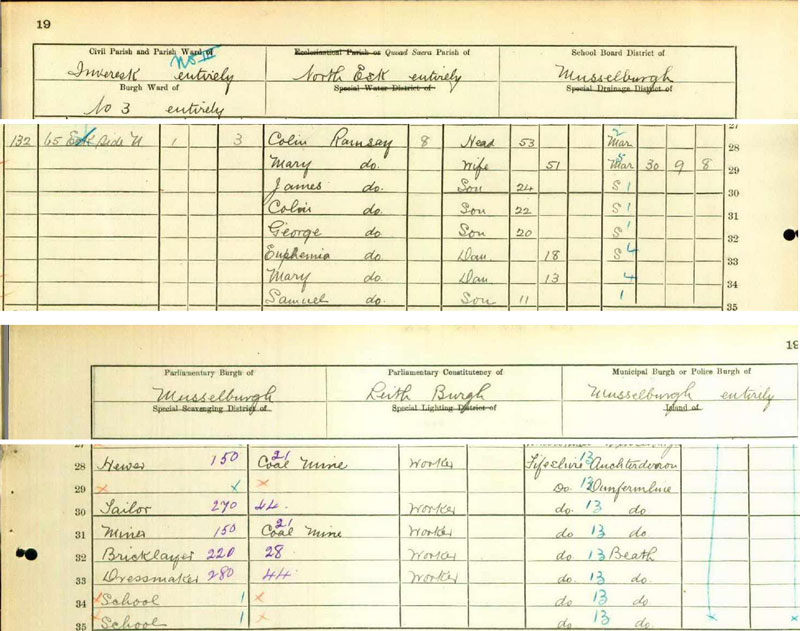 19
Civil Parish and Parish Ward of
No III
Inveresk entirely
Burgh Ward of
No 3 entirely
Ecclesiastical Parish or Quoad Sacra Parish of
North Esk entirely
Special Water District of
School Board District of
Musselburgh
Special Drainage District of
27
132 65 Esk Side W 1 3 Colin Ramsay 8 Head 53 Mar 2 28
Mary do. Wife 51 Mar 5 30 9 8 29
James do. Son 24 S 1 30
Colin do. Son 22 S 1 31
George do. Son 20 S 1 32
Euphemia do. Dau. 18 S 4 33
Mary do. Dau 13 4 34
Samuel do. Son 11 1 35
19
Parliamentary Burgh of
Musselburgh
Special Scavenging District of
Parliamentary Constituency of
Leith Burgh
Special Lighting District of
Municipal Burgh or Police Burgh of
Musselburgh entirely
Island of
27
28 Hewer 150 Coal Mine 21 Worker Fifeshire 13 Auchterderran
29 x x x Do. 13 Dunfermline
30 Tailor 270 44. Worker do. 13 do
31 Miner 150 Coal Mine 21 Worker do 13 do
32 Bricklayer 220 28 Worker do 13 Beath
33 Dressmaker 280 44 Worker do. 13 do
34 x School 1 x do 13 do
35 x School 1 x do 13 do x x